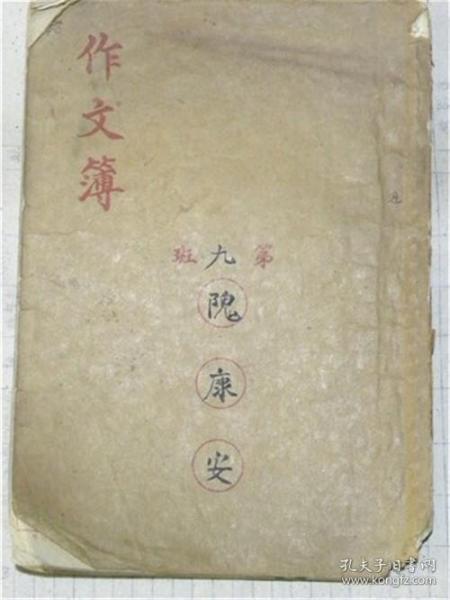 作文簿
第九班
隗康安
孔夫子旧书网
www.kongfz.com